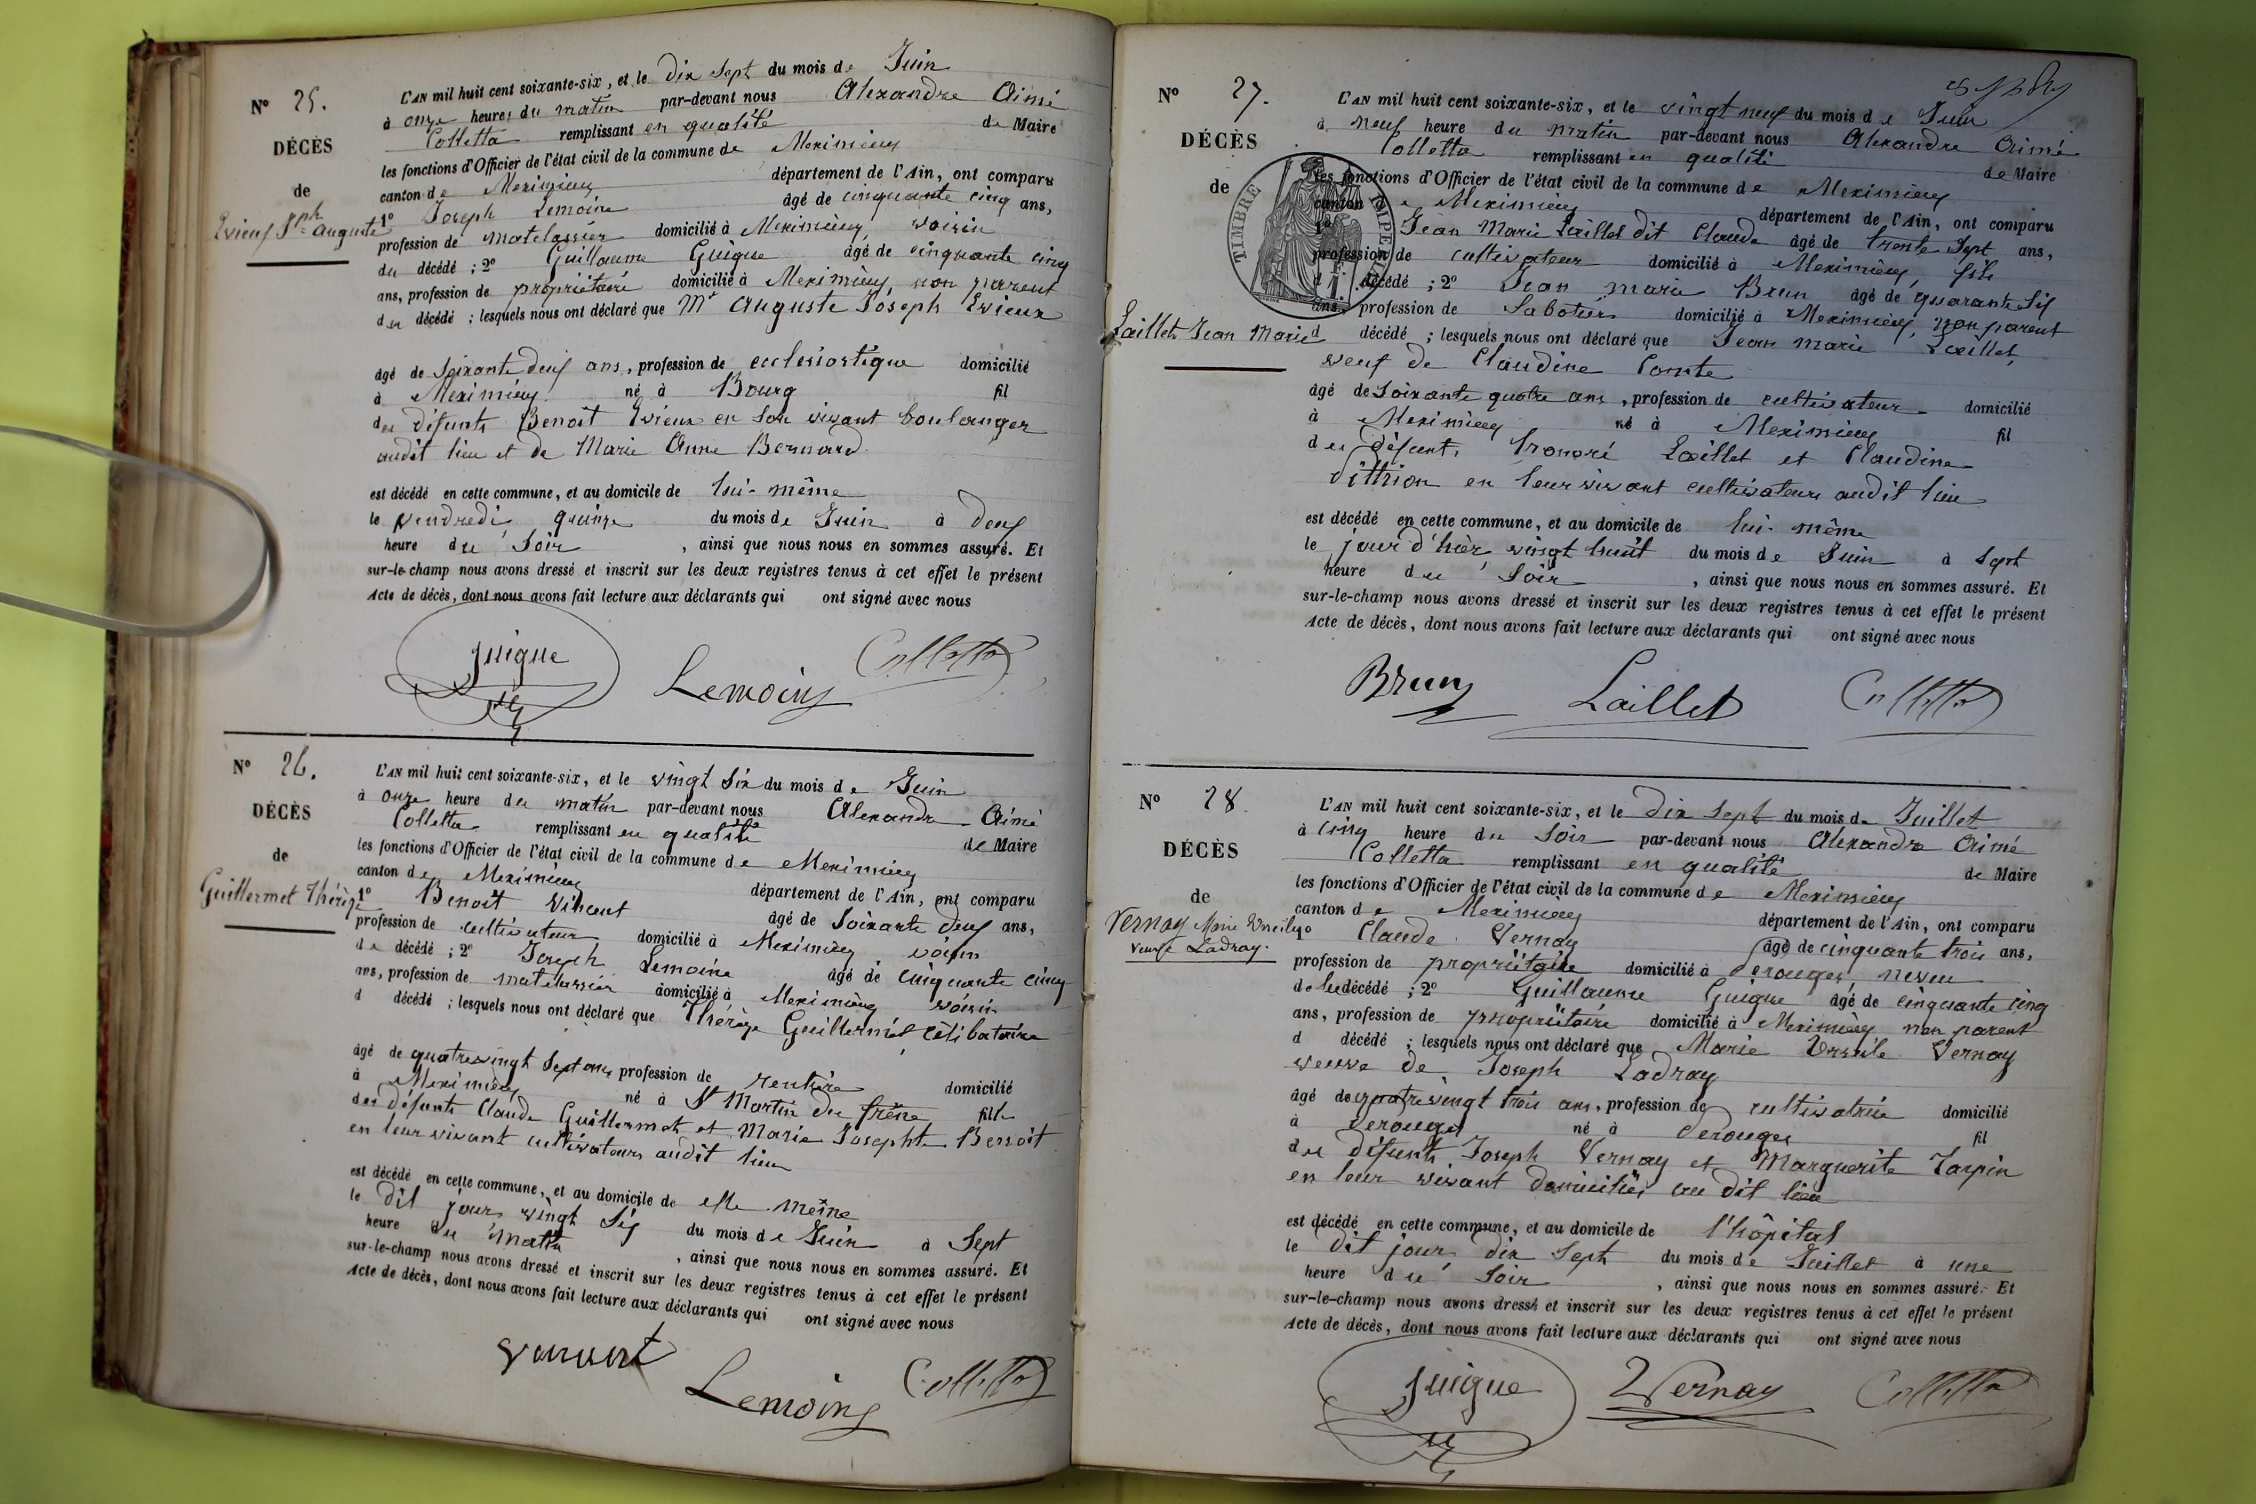 N° 25.
DÉCÈS
de
Evieux Jph Auguste
L'AN mil huit cent soixante-six, et le dix sept du mois de Juin
à onze heures du matin par-devant nous Alexandre Aimé
Colletta remplissant en qualité de Maire
les fonctions d'Officier de l'état civil de la commune de Meximieux
canton de Meximieux département de l'Ain, ont comparu
1° Joseph Lemoine âgé de cinquante cinq ans,
profession de matelassier domicilié à Meximieux, voisin
du décédé ; 2° Guillaume Guigue âgé de cinquante cinq
ans, profession de propriétaire domicilié à Meximieux, non parent
du décédé ; lesquels nous ont déclaré que Mr Auguste Joseph Evieux
âgé de soixante deux ans, profession de ecclésiastique domicilié
à Meximieux né à Bourg fil
des défunts Benoit Evieux en son vivant boulanger
audit lieu et de Marie Anne Bernard
est décédé en cette commune, et au domicile de lui-même
le vendredi quinze du mois de Juin à deux
heure du soir, ainsi que nous nous en sommes assuré. Et
sur-le-champ nous avons dressé et inscrit sur les deux registres tenus à cet effet le présent
Acte de décès, dont nous avons fait lecture aux déclarants qui ont signé avec nous
Guigue Lemoine Colletta
N° 26.
DÉCÈS
de
Guillermet Thérèze
L'AN mil huit cent soixante-six, et le vingt six du mois de Juin
à onze heure du matin par-devant nous Alexandre Aimé
Colletta remplissant en qualité de Maire
les fonctions d'Officier de l'état civil de la commune de Meximieux
canton de Meximieux département de l'Ain, ont comparu
1° Benoit Vincent âgé de soixante deux ans,
profession de cultivateur domicilié à Meximieux voisin
de décédé ; 2° Joseph Lemoine âgé de cinquante cinq
ans, profession de matelassier domicilié à Meximieux voisin
d décédé ; lesquels nous ont déclaré que Thérèze Guillermet célibataire
âgé de quatrevingt sept ans, profession de rentière domicilié
à Meximieux né à St Martin du frêne fille
des défunts Claude Guillermet et Marie Josephte Benoit
en leur vivant cultivateurs audit lieu
est décédé en cette commune, et au domicile de elle même
le dit jour vingt six du mois de Juin à sept
heure du matin, ainsi que nous nous en sommes assuré. Et
sur-le-champ nous avons dressé et inscrit sur les deux registres tenus à cet effet le présent
Acte de décès, dont nous avons fait lecture aux déclarants qui ont signé avec nous
Vincent Lemoine Colletta
N° 27.
DÉCÈS
de
TIMBRE IMPERIAL
Laillet Jean Marie
L'AN mil huit cent soixante-six, et le vingt neuf du mois de Juin
à neuf heure du matin par-devant nous Alexandre Aimé
Colletta remplissant en qualité de Maire
les fonctions d'Officier de l'état civil de la commune de Meximieux
canton de Meximieux département de l'Ain, ont comparu
1° Jean Marie Laillet dit Claude âgé de trente sept ans,
profession de cultivateur domicilié à Meximieux, fils
d décédé ; 2° Jean marie Brun âgé de quarante six
ans, profession de Sabotier domicilié à Meximieux, non parent
d décédé ; lesquels nous ont déclaré que Jean marie Laillet
veuf de Claudine Comte
âgé de soixante quatre ans, profession de cultivateur domicilié
à Meximieux né à Meximieux fil
des défunts honoré Laillet et Claudine
Dithion en leur vivant cultivateurs audit lieu
est décédé en cette commune, et au domicile de lui-même
le jour d'hier vingt huit du mois de Juin à sept
heure du soir, ainsi que nous nous en sommes assuré. Et
sur-le-champ nous avons dressé et inscrit sur les deux registres tenus à cet effet le présent
Acte de décès, dont nous avons fait lecture aux déclarants qui ont signé avec nous
Brun Laillet Colletta
N° 28.
DÉCÈS
de
Vernay Marie Ursule
veuve Ladray.
L'AN mil huit cent soixante-six, et le dix sept du mois de Juillet
à cinq heure du soir par-devant nous Alexandre Aimé
Colletta remplissant en qualité de Maire
les fonctions d'Officier de l'état civil de la commune de Meximieux
canton de Meximieux département de l'Ain, ont comparu
1° Claude Vernay âgé de cinquante trois ans,
profession de propriétaire domicilié à Perouges, neveu
de la décédé ; 2° Guillaume Guigue âgé de cinquante cinq
ans, profession de propriétaire domicilié à Meximieux non parent
d décédé ; lesquels nous ont déclaré que Marie Ursule Vernay
veuve de Joseph Ladray
âgé de quatrevingt trois ans, profession de cultivatrice domicilié
à Perouges né à Perouges fil
des défunts Joseph Vernay et Marguerite Tarpin
en leur vivant domiciliés au dit lieu
est décédé en cette commune, et au domicile de l'hôpital
le dit jour dix sept du mois de Juillet à une
heure du soir, ainsi que nous nous en sommes assuré. Et
sur-le-champ nous avons dressé et inscrit sur les deux registres tenus à cet effet le présent
Acte de décès, dont nous avons fait lecture aux déclarants qui ont signé avec nous
Guigue Vernay Colletta